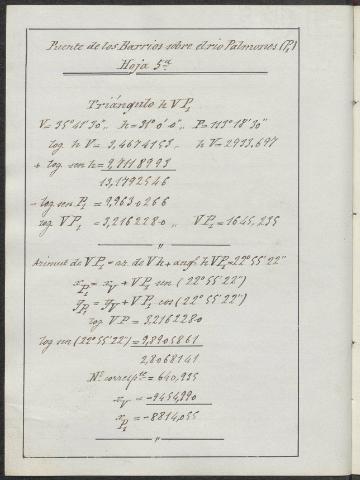 Puente de los Barrios sobre el rio Palmones (P₁)
Hoja 5ª
Triángulo h V P₁
V = 35° 41' 30" ,, h = 31° 0' 0" ,, P = 113° 18' 30"
log. h V = 3,4674153 ,, h V = 2933,697
+ log. sen h = 9,7118993
13,1792546
- log. sen P₁ = 9,9630266
log VP₁ = 3,2162280 ,, VP₁ = 1645,235
"
Azimut de VP₁ = az. de Vh + angº h VP₁ = 22° 55' 22"
x P₁ = x V + VP₁ sen (22° 55' 22")
y P₁ = y V + VP₁ cos (22° 55' 22")
log VP = 3,2162280
log sen (22° 55' 22") = 9,5905861
2,8068141
Nº correspᵗᵉ = 640,935
x V = -9454,990
x P₁ = -8814,055
"